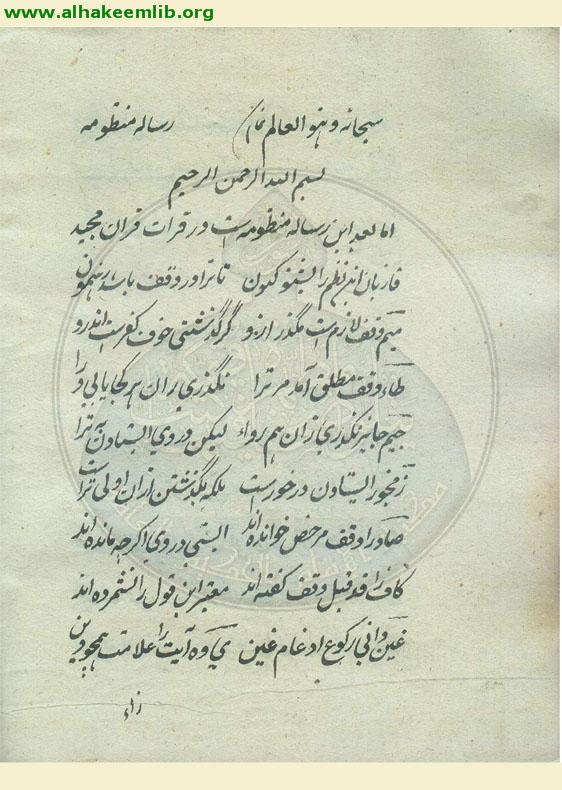 www.alhakeemlib.org
سبحانه و هو العالم رساله منظومه
بسم الله الرحمن الرحيم
اما بعد این رساله منظومه است در قرات قران مجید
قاریان این نظم را بشنو کنون تا ترا در وقف باشد رهنمون
میم وقف لازم است مگذر ازو گر گذشتی خوف کفرست اندرو
طاء وقف مطلق آمد مر ترا نگذری زان هر کجا یابی ورا
جیم جایز نگذری زان هم رواء لیکن در وی ایستادن به ترا
ز مجوز ایستادن در خورست بلکه بگذشتن ازان اولی تراست
صاد را وقف مرخص خوانده اند ایستی در وی اگر چه مانده اند
کاف را قد قیل وقف گفته اند معتبر این قول را نشمرده اند
عین دانی رکوع ادغام غین ی و ه آیت را علامت همچو
زاء